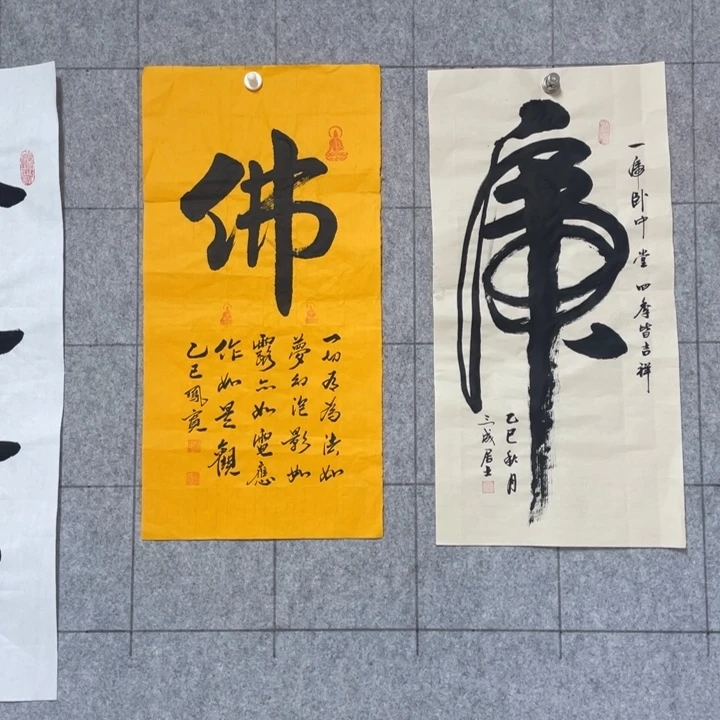 佛
一切有為法如
夢幻泡影如
露亦如電應
作如是觀
乙巳鳳寬
虎
一虎卧中堂四季皆吉祥
乙巳秋月
三成居士